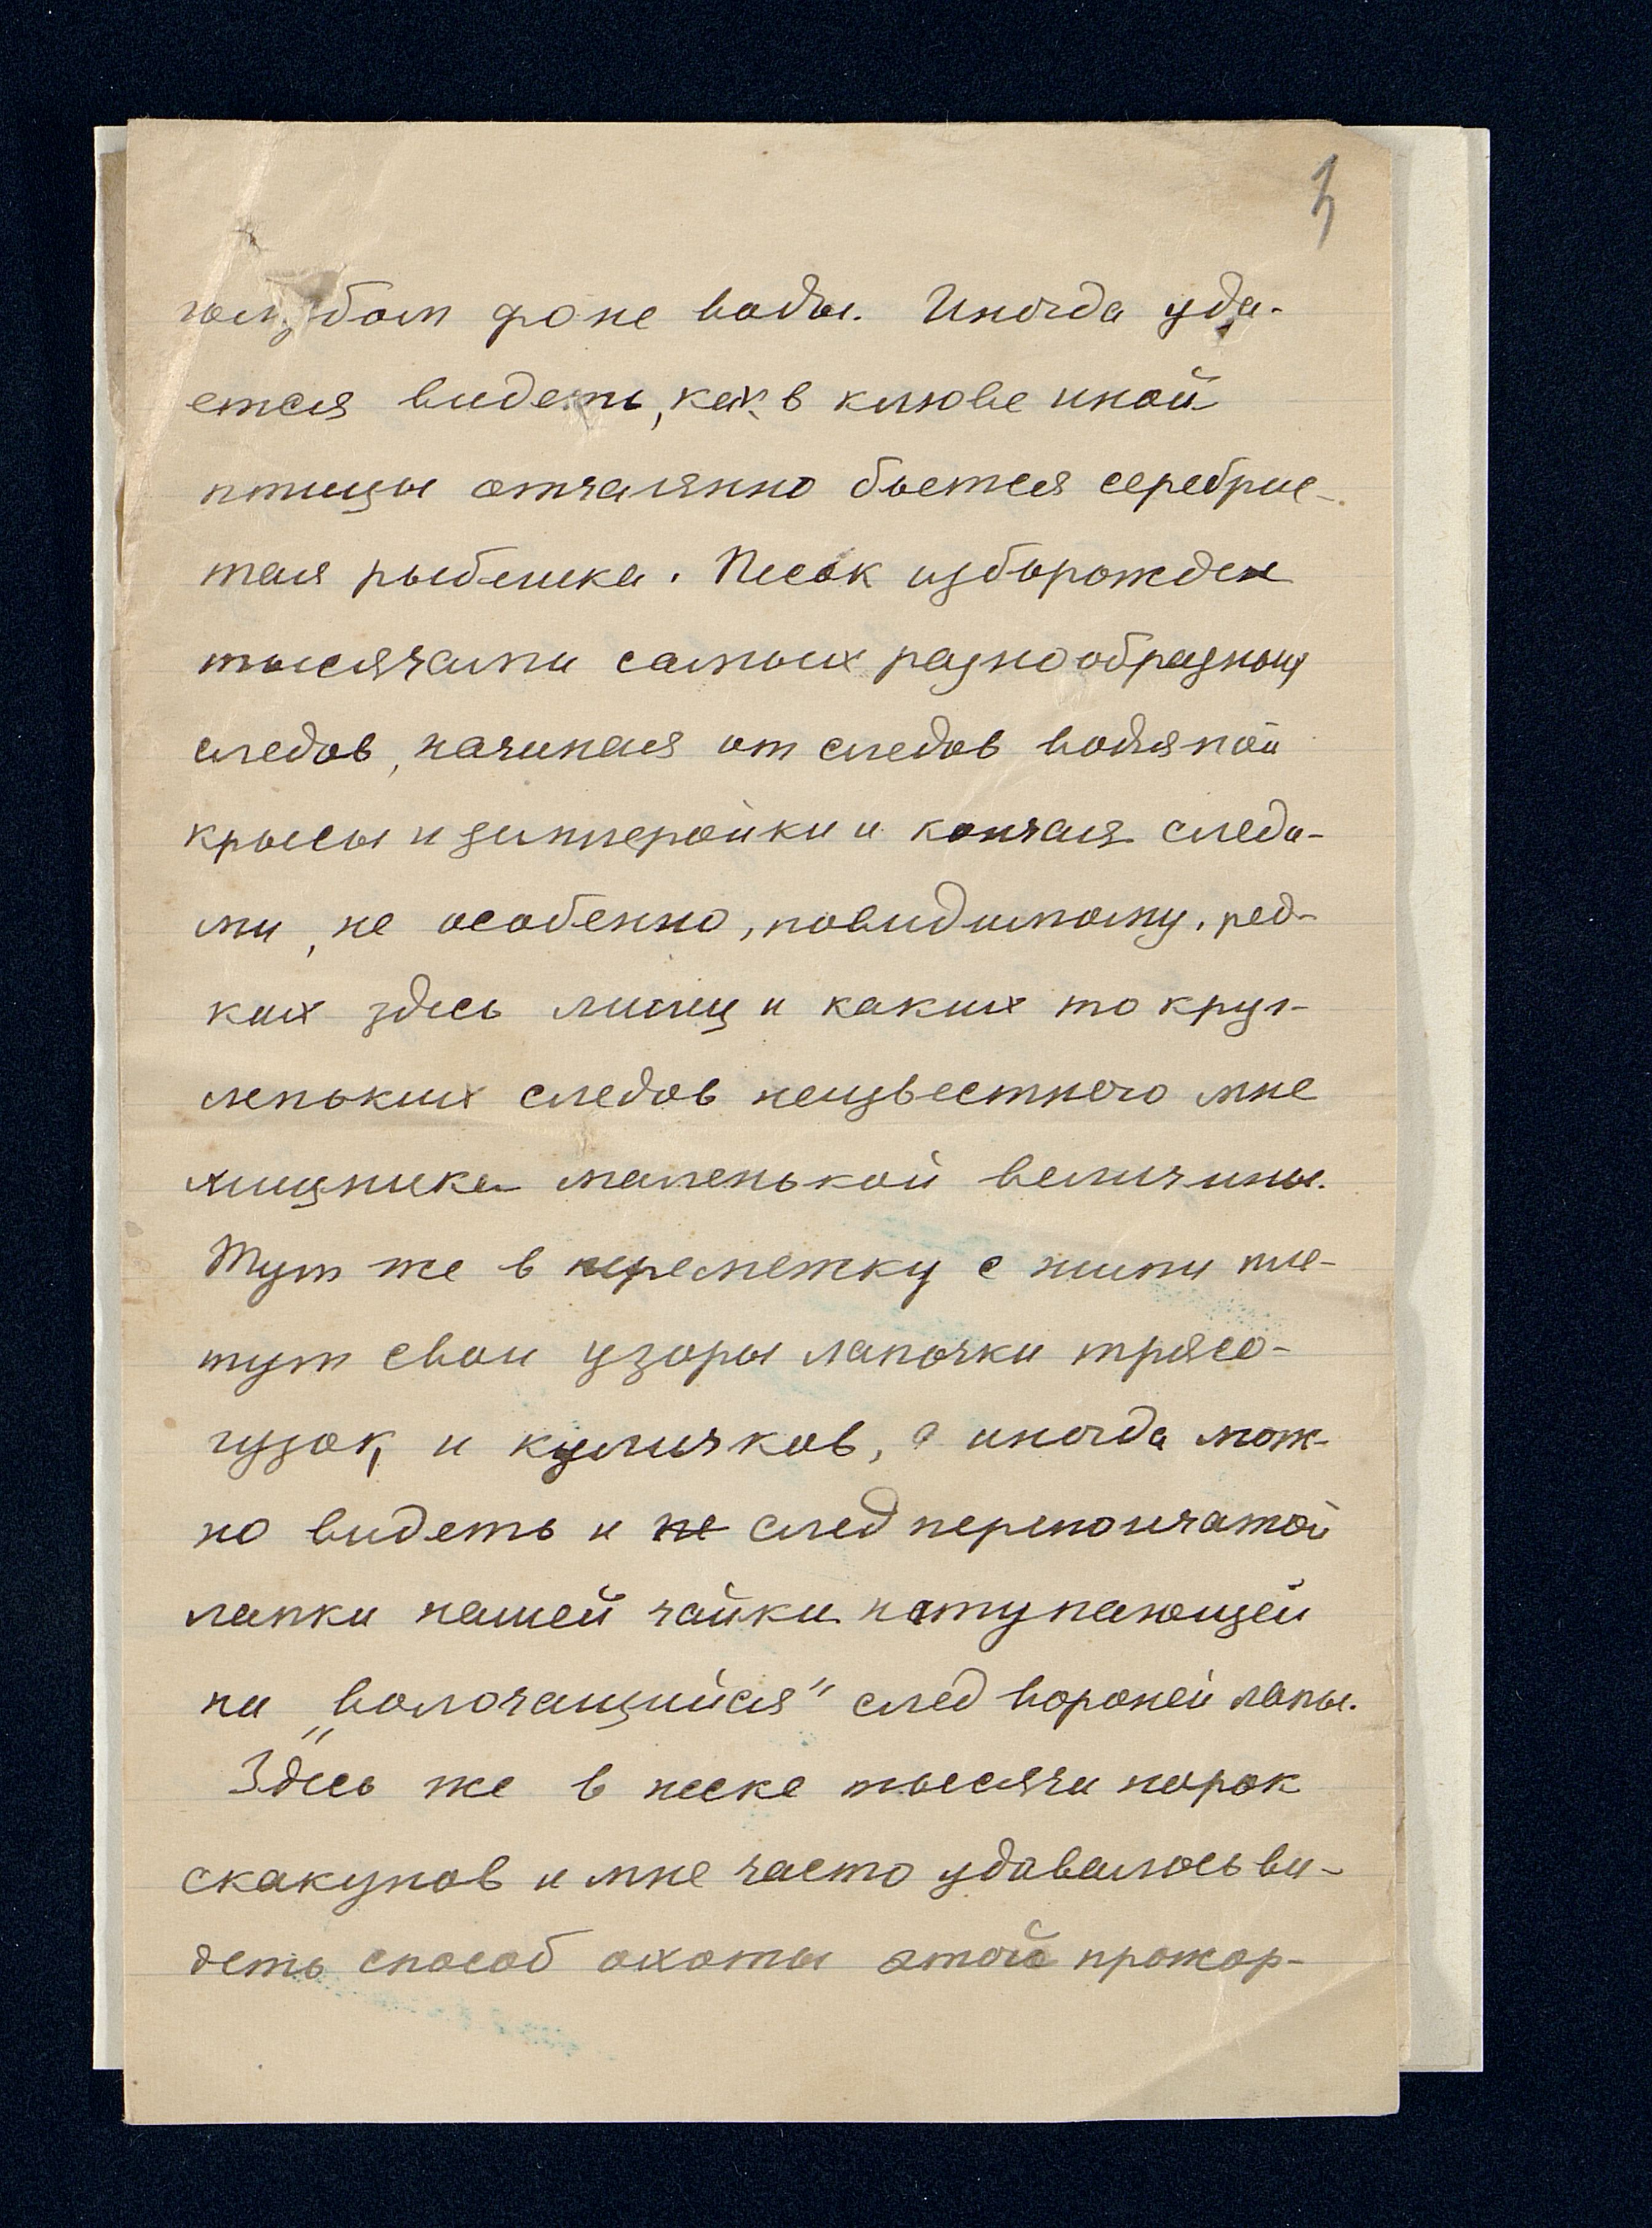 3
голубом фоне воды. Иногда уда-
ется видеть, как в клюве иной
птицы отчаянно бьется серебрис-
тая рыбешка. Песок изборожден
тысячами самых разнообразных
следов, начиная от следов водяной
крысы и землеройки и кончая следа-
ми, не особенно, повидимому, ред-
ких здесь лисиц и каких то круг-
леньких следов неизвестного мне
хищника маленькой величины.
Тут же в перемежку с ними пле-
тут свои узоры лапочки трясо-
гузок, и куличков, а иногда мож-
но видеть и не след перепончатой
лапки нашей чайки наступающей
на „волочащийся“ след вороней лапы.
Здесь же в песке тысячи норок
скакунов и мне часто удавалось ви-
деть способ охоты этой прожор-